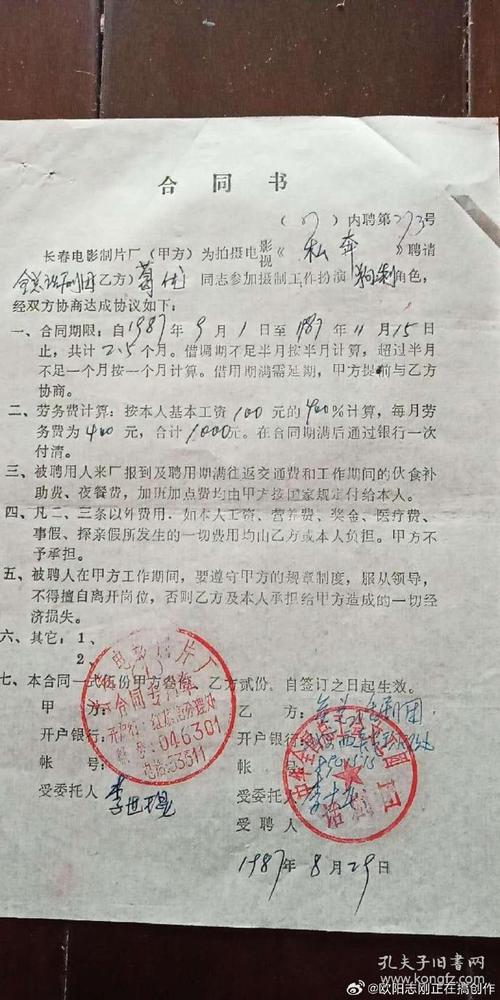 合同书
(87)内聘第273号
长春电影制片厂(甲方)为拍摄电影视《私奔》聘请
全总话剧团(乙方)葛优同志参加摄制工作扮演狗剩角色,
经双方协商达成协议如下:
一、合同期限:自1987年9月1日至1987年11月15日
止,共计2.5个月。借调期不足半月按半月计算,超过半月
不足一个月按一个月计算。借用期满需延期,甲方提前与乙方
协商。
二、劳务费计算:按本人基本工资100元的400%计算,每月劳
务费为400元,合计1000元。在合同期满后通过银行一次
付清。
三、被聘用人来厂报到及聘用期满往返交通费和工作期间的伙食补
助费、夜餐费,加班加点费均由甲方按国家规定付给本人。
四、凡二、三条以外费用.如本人工资、营养费、奖金、医疗费、
事假、探亲假所发生的一切费用均由乙方或本人负担。甲方不
予承担。
五、被聘人在甲方工作期间,要遵守甲方的规章制度,服从领导,
不得擅自离开岗位,否则乙方及本人承担给甲方造成的一切经
济损失。
六、其它:1、
2、
七、本合同一式伍份甲方叁份,乙方贰份,自签订之日起生效。
甲方:
开户银行:
帐号:
受委托人 李世琨
电影制片厂
合同专用章
开户行:红旗街办理处
帐号:046301
电话:53311
乙方:全总话剧团
开户银行:
帐号:
受委托人
受聘人
1987年8月29日
孔夫子旧书网
kongfz.com
@欧阳志刚正在搞创作